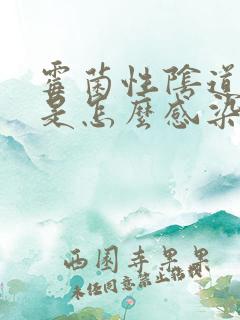 霉菌性陰道
是怎麼感染
西園寺果果
未经同意禁止转载